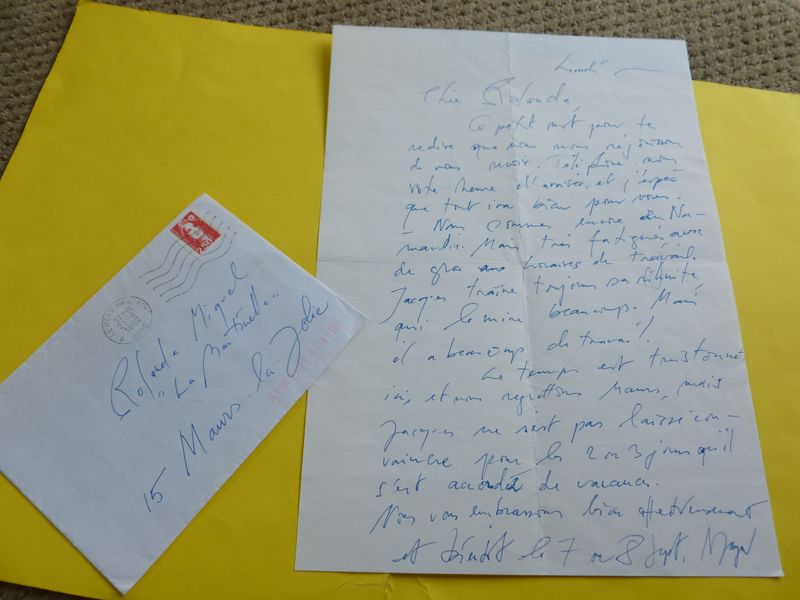 Lundi
Chère Rolande,
Ce petit mot pour te
redire que nous nous réjouissons
de vous revoir. Téléphone nous
votre heure d'arrivée, et j'espère
que tout ira bien pour vous.
- Nous sommes encore en Nor-
mandie. Mais très fatigués avec
de gros horaires de travail.
Jacques traîne toujours sa
qui le mine beaucoup. Mais
il a beaucoup de travail.
Le temps est tristounet
ici, et nous regrettons Maurs, mais
Jacques ne s'est pas laissé con-
vaincre pour les 2 ou 3 jours qu'il
s'est accordé de vacances.
Nous vous embrassons bien affectueusement
et bientôt le 7 ou 8 Sept.
2,50
1992
Rolande Miquel
"La Martinelle"
15 Maurs-la-Jolie